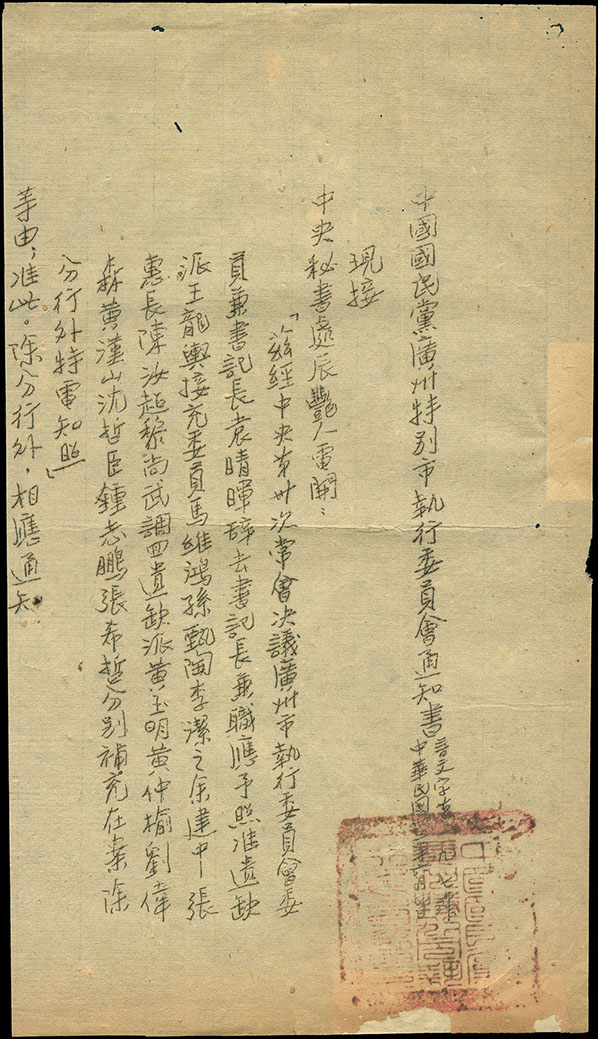 中國國民黨廣州特別市執行委員會通知書
中華民國 年六月
現接
中央秘書處辰艷人電開：
「茲經中央第卅次常會決議廣州市執行委員會委
員兼書記長袁晴暉辞去書記長兼職應予照准遺缺
派王龍輿接充委員馬維鴻孫甄陶李潔之余建中張
惠長陳汝超黎尚武調四遺缺派黃玉明黃仲榆劉偉
森黃漢山沈哲臣鍾志鵬張希哲分别補充在案除
分行外特電知照」
等由，准此。除分行外，相應通知